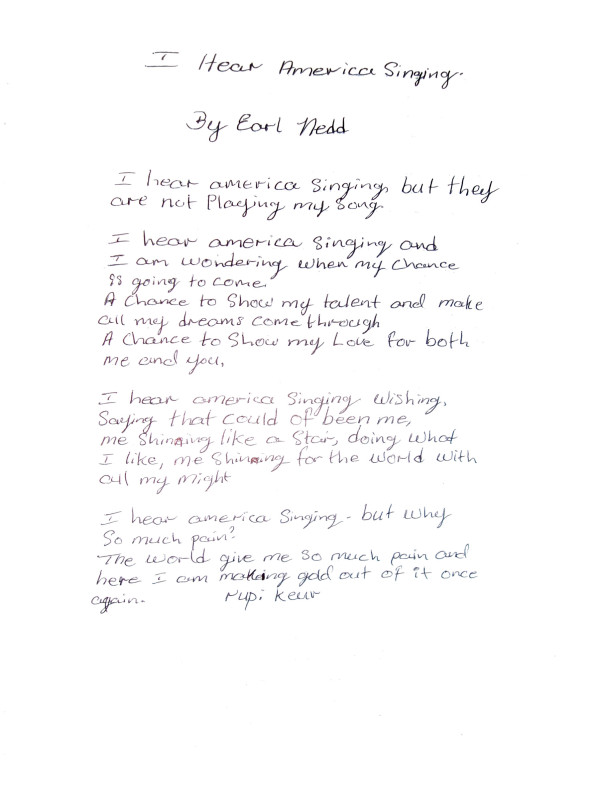 I Hear America Singing.
By Earl Nedd
I hear america Singing, but they
are not Playing my Song.
I hear america Singing and
I am wondering when my Chance
is going to come.
A Chance to Show my talent and make
all my dreams come through
A Chance to Show my Love for both
me and you,
I hear america Singing wishing,
Saying that could of been me,
me Shinning like a Star, doing what
I like, me Shinning for the world with
all my might
I hear america Singing - but why
So much pain?
The world give me so much pain and
here I am making gold out of it once
again. rupi Keur